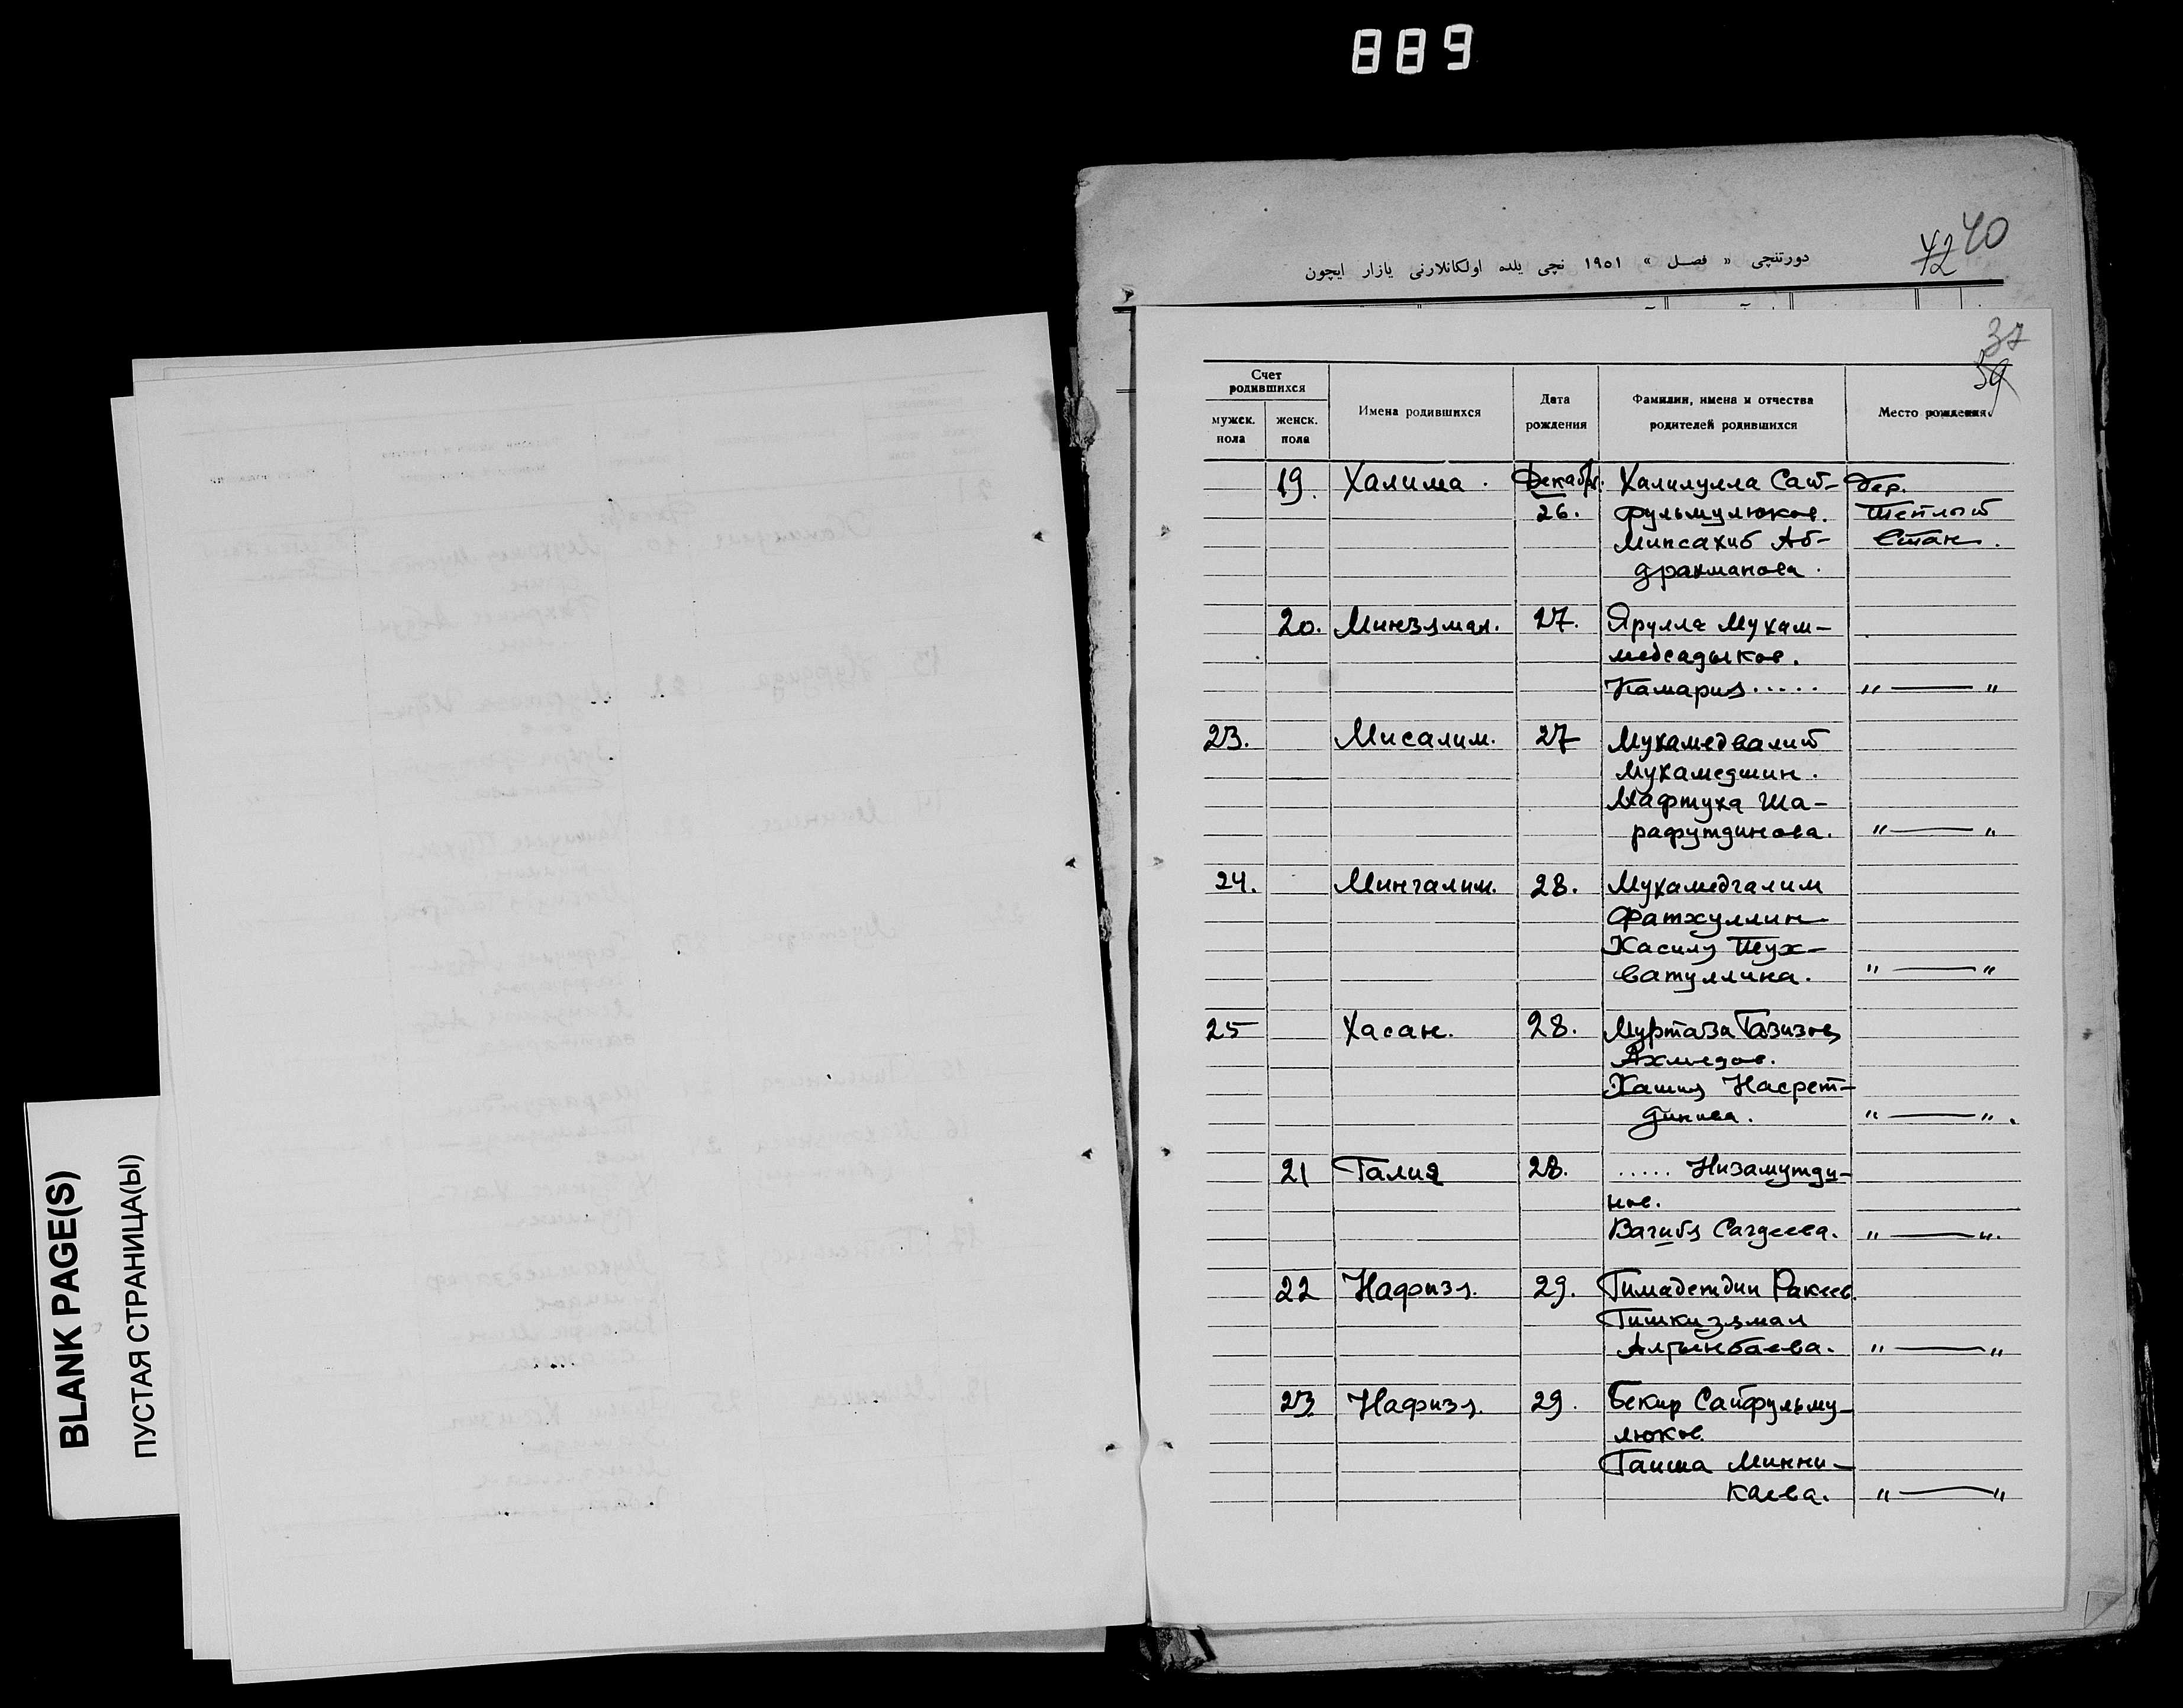 889
دورتنچی « فصل » ١٩٠١ نچی یلده اولکانلارنی یازار ایچون
42 40
37
59
Счет родившихся
мужск. пола
женск. пола
Имена родившихся
Дата рождения
Фамилии, имена и отчества родителей родившихся
Место рождения
19. Халима. Декабр. Халилулла Сай- Дер.
26. фульмулюков. Теплый
Минсахиб Аб- Стан.
драхманова.
20. Минзямал. 27. Ярулла Мухам-
медсадыков.
Камария..... " — "
23. Мисалим. 27 Мухамедвалий
Мухамедшин.
Мафтуха Ша-
рафутдинова. " — "
24. Мингалим. 28. Мухамедгалим
Фатхуллин
Жасиля Тух-
ватуллина. " — "
25 Хасан. 28. Муртаза Газизов
Ахмедов.
Хашия Насрет-
динова. " — ".
21 Галия 28. ..... Низамутди-
нов.
Вагибя Сагдеева. " — ".
22 Нафизя. 29. Гимадетдин Ракеев.
Гишкизямал
Алтынбаева. " — "
23 Нафизя. 29. Бекир Сайфульму-
люков
Гаиша Минни-
каева. " — "
BLANK PAGE(S)
ПУСТАЯ СТРАНИЦА(Ы)